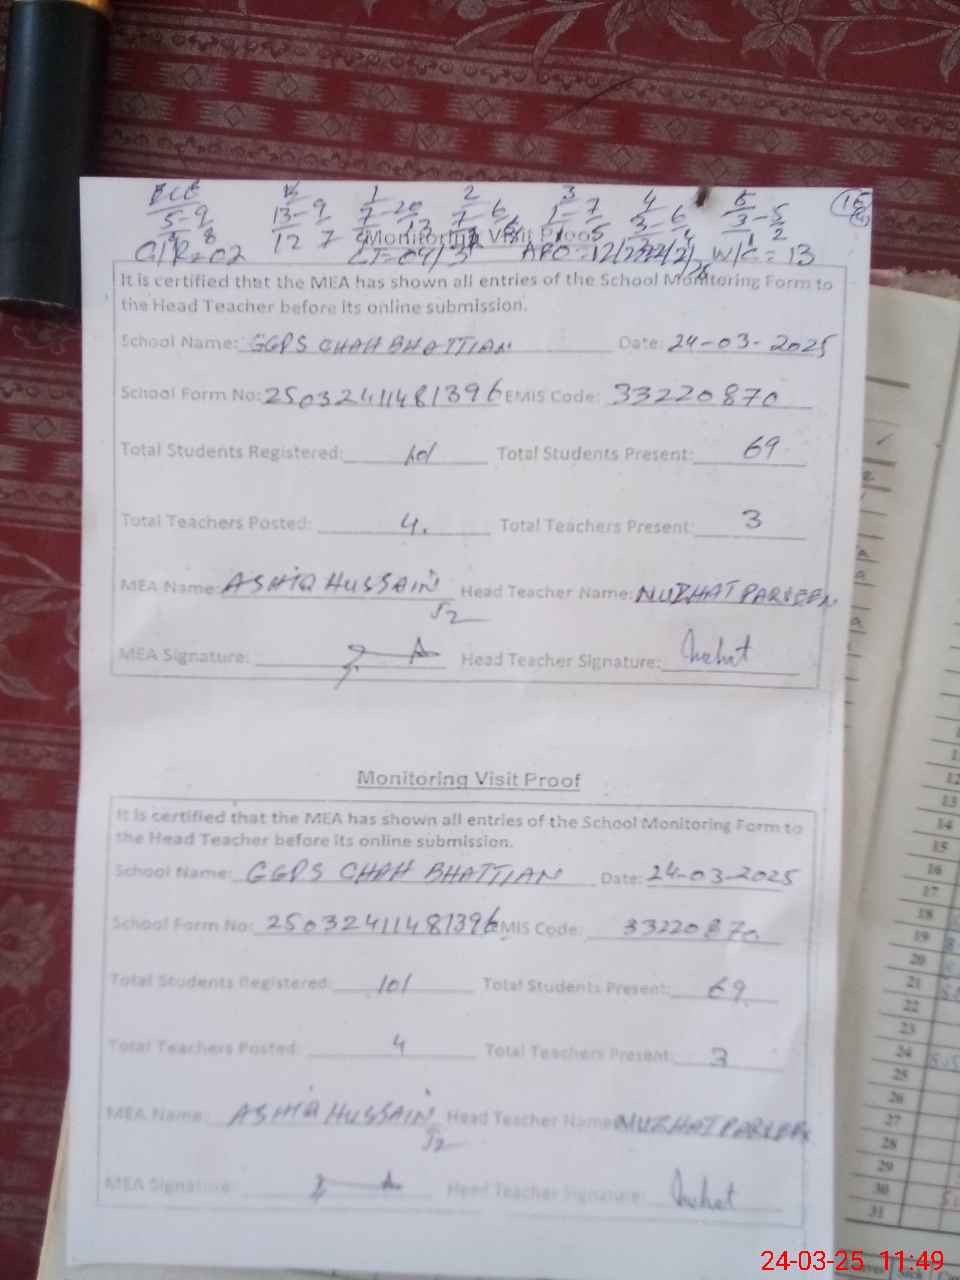 ECE K 1 2 3 4 5
5-9 13-9 7-20 7-6 1-7 3-6 3-5
12 7
C/R=02 W/C = 13
Monitoring Visit Proof
It is certified that the MEA has shown all entries of the School Monitoring Form to
the Head Teacher before its online submission.
School Name: GGPS CHAH BHATTIAN Date: 24-03-2025
School Form No: 25032411481396 EMIS Code: 33220870
Total Students Registered: 101 Total Students Present: 69
Total Teachers Posted: 4. Total Teachers Present: 3
MEA Name: ASHIQ HUSSAIN Head Teacher Name: NUZHAT PARVEEN
52
MEA Signature: Head Teacher Signature: Nuzhat
Monitoring Visit Proof
It is certified that the MEA has shown all entries of the School Monitoring Form to
the Head Teacher before its online submission.
School Name: GGPS CHAH BHATTIAN Date: 24-03-2025
School Form No: 25032411481396 EMIS Code: 33220870
Total Students Registered: 101 Total Students Present: 69
Total Teachers Posted: 4 Total Teachers Present: 3
MEA Name: ASHIQ HUSSAIN Head Teacher Name: NUZHAT PARVEEN
52
MEA Signature: Head Teacher Signature: Nuzhat
12
13
14
15
16
17
18
19
20
21
22
23
24
25
26
27
28
29
30
31
24-03-25 11:49